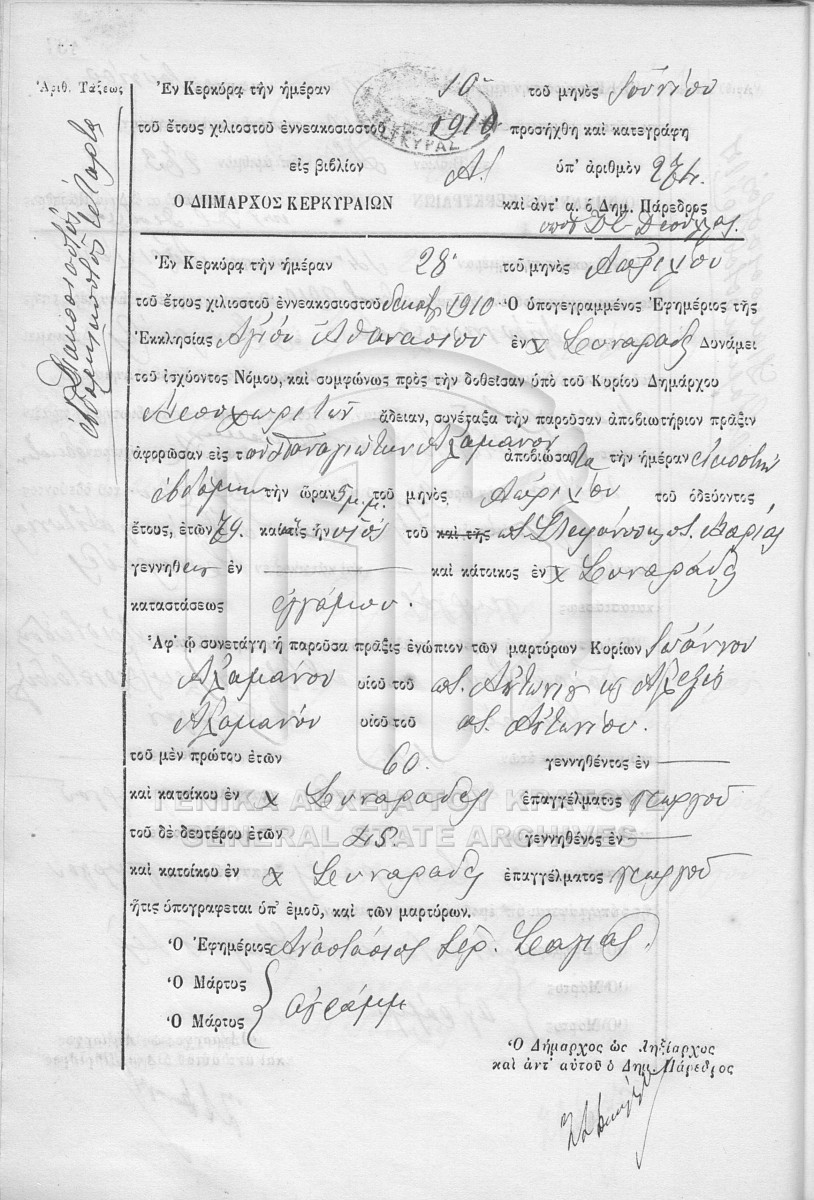 Ἀριθ. Τάξεως
Ἐν Κερκύρᾳ τὴν ἡμέραν 10 τοῦ μηνὸς Ἰουνίου
τοῦ ἔτους χιλιοστοῦ ἐννεακοσιοστοῦ 1910 προσήχθη καὶ κατεγράφη
εἰς βιβλίον Α. ὑπ' ἀριθμὸν 274.
Ο ΔΗΜΑΡΧΟΣ ΚΕΡΚΥΡΑΙΩΝ καὶ ἀντ' α. ὁ Δημ. Πάρεδρος
ΚΕΡΚΥΡΑΣ
Ἐν Κερκύρᾳ τὴν ἡμέραν 28 τοῦ μηνὸς Ἀπριλίου
τοῦ ἔτους χιλιοστοῦ ἐννεακοσιοστοῦ 1910 Ὁ ὑπογεγραμμένος Ἐφημέριος τῆς
Ἐκκλησίας Ἁγίου Ἀθανασίου ἐν χ Συναράδες Δυνάμει
τοῦ ἰσχύοντος Νόμου, καὶ συμφώνως πρὸς τὴν δοθεῖσαν ὑπὸ τοῦ Κυρίου Δημάρχου
ἄδειαν, συνέταξα τὴν παροῦσαν ἀποβιωτήριον πρᾶξιν
ἀφορῶσαν εἰς τὸν Παναγιώτην Ἀλαμάνον ἀποβιώσαντα τὴν ἡμέραν εἰκοστὴν
ἑβδόμην τὴν ὥραν 5 μ.μ. τοῦ μηνὸς Ἀπριλίου τοῦ ὁδεύοντος
ἔτους, ἐτῶν 79. καὶ τις ἦν υἱὸς τοῦ καὶ τῆς ποτ. Μαρίας
γεννηθεις ἐν — καὶ κάτοικος ἐν χ Συναράδες
καταστάσεως ἐγγάμου.
Ἀφ' ᾧ συνετάγη ἡ παροῦσα πρᾶξις ἐνώπιον τῶν μαρτύρων Κυρίων Ἰωάννου
Ἀλαμάνου υἱοῦ τοῦ ποτ. Ἀντωνίου κ Ἀλεξίου
Ἀλαμάνου υἱοῦ τοῦ ποτ. Ἀντωνίου.
τοῦ μὲν πρώτου ἐτῶν 60. γεννηθέντος ἐν —
καὶ κατοίκου ἐν χ Συναράδες ἐπαγγέλματος γεωργοῦ
ΓΕΝΙΚΑ ΑΡΧΕΙΑ ΤΟΥ ΚΡΑΤΟΥΣ
τοῦ δὲ δευτέρου ἐτῶν 45. γεννηθένος ἐν —
GENERAL STATE ARCHIVES
καὶ κατοίκου ἐν χ Συναράδες ἐπαγγέλματος γεωργοῦ
ἥτις ὑπογραφεται ὑπ' ἐμοῦ, καὶ τῶν μαρτύρων.
Ὁ Ἐφημέριος Ἀναστάσιος Ἱερ.
Ὁ Μάρτυς
Ὁ Μάρτυς ἀγράμμ
Ὁ Δήμαρχος ὡς Ληξίαρχος
καὶ ἀντ' αὐτοῦ ὁ Δημ. Πάρεδρος